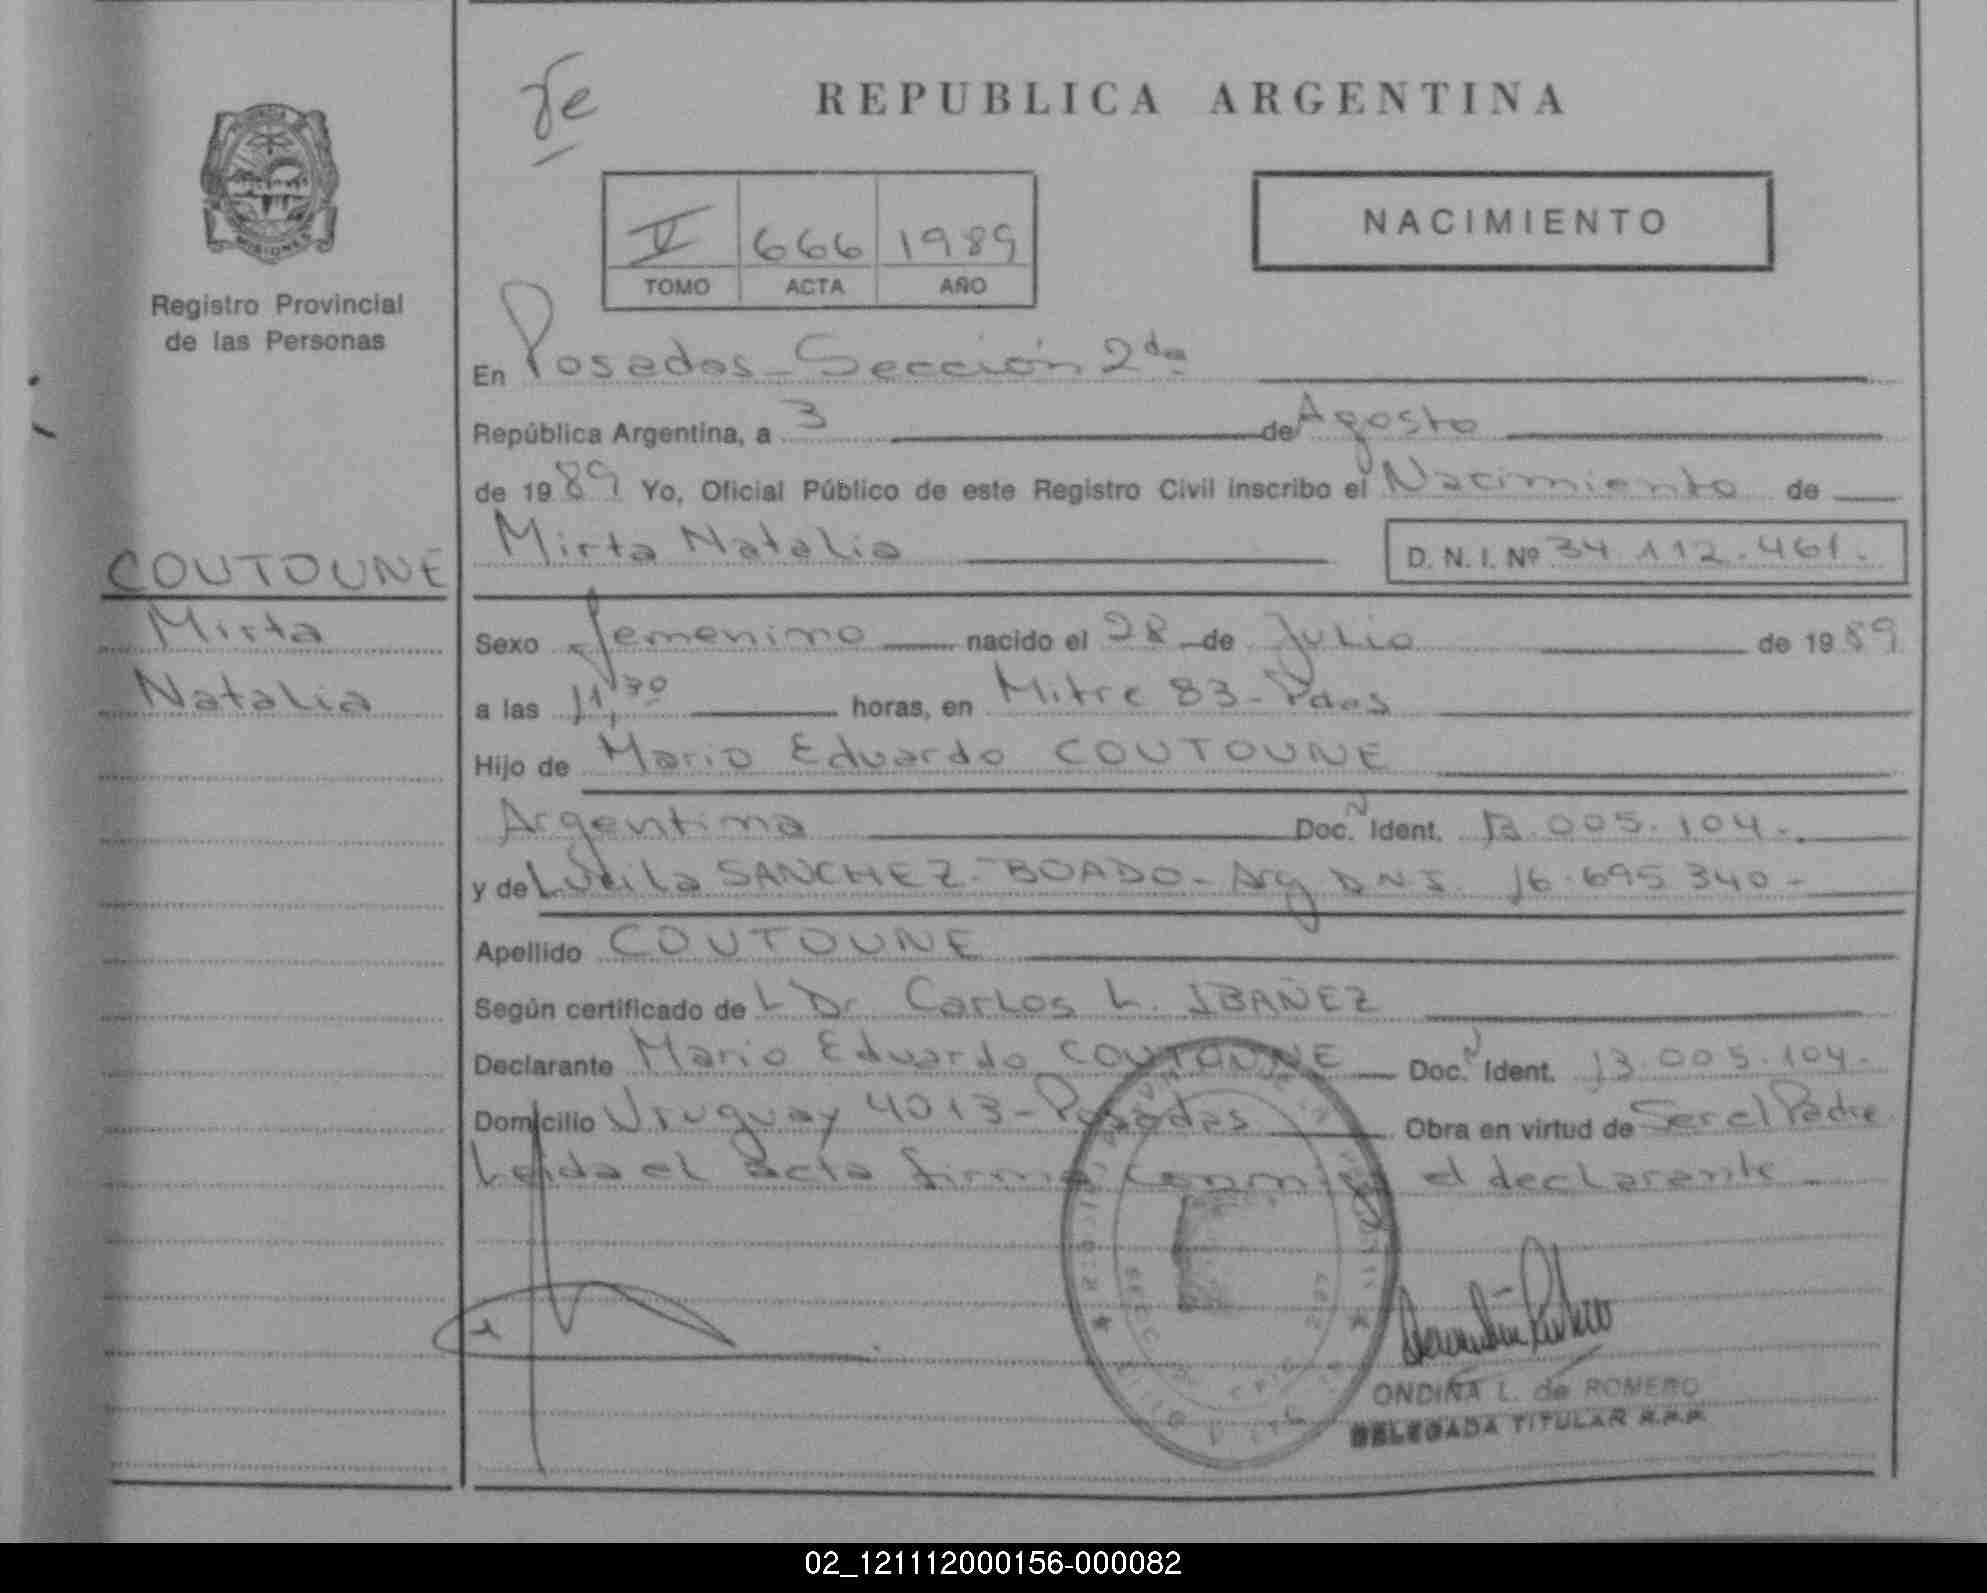 REPUBLICA ARGENTINA
NACIMIENTO
V 666 1989
TOMO ACTA AÑO
MISIONES
Registro Provincial
de las Personas
COUTOUNE
Mirta
Natalia
En Posadas - Sección 2da
República Argentina, a 3 de Agosto
de 1989 Yo, Oficial Público de este Registro Civil inscribo el Nacimiento de
Mirta Natalia D. N. I. Nº 34.112.461.
Sexo femenino nacido el 28 de Julio de 1989
a las 11,30 horas, en Mitre 83 - Pdas
Hijo de Mario Eduardo COUTOUNE
Argentina Doc. Ident. 13.005.104.
y de Lucila SANCHEZ - BOADO - Arg DNI. 16.695.340 -
Apellido COUTOUNE
Según certificado de L Dr. Carlos L. IBAÑEZ
Declarante Mario Eduardo COUTOUNE Doc. Ident. 13.005.104.
Domicilio Uruguay 4013 - Posadas Obra en virtud de Ser el Padre
Leida el acta firma conmigo el declarante
ONDINA L. de ROMERO
DELEGADA TITULAR R.P.P.
02_121112000156-000082